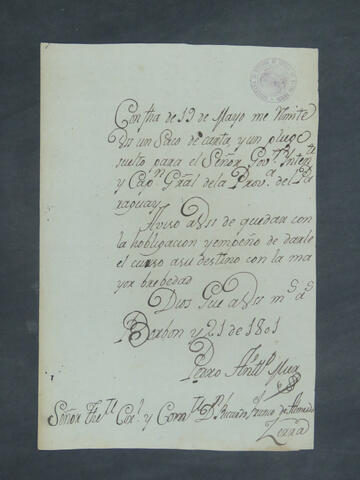 Con fha de 19 de Mayo me Rimite
Vs un Saco de carta, y un pliego
suelto para el Señor Govr Inten.te
y Capn Gñal de la Prova del Pa
raguay.
Aviso a Vs de quedar con
la hobligacion y empeño de darle
el curso a su destino con la ma
yor brebedad
Dios Gue a Vs ms as
Borbon y 21 de 1801
Pedro Antº Mier
Señor The Cor.l y Com.te Dn Ricardo Franco de Almeida
Zerra